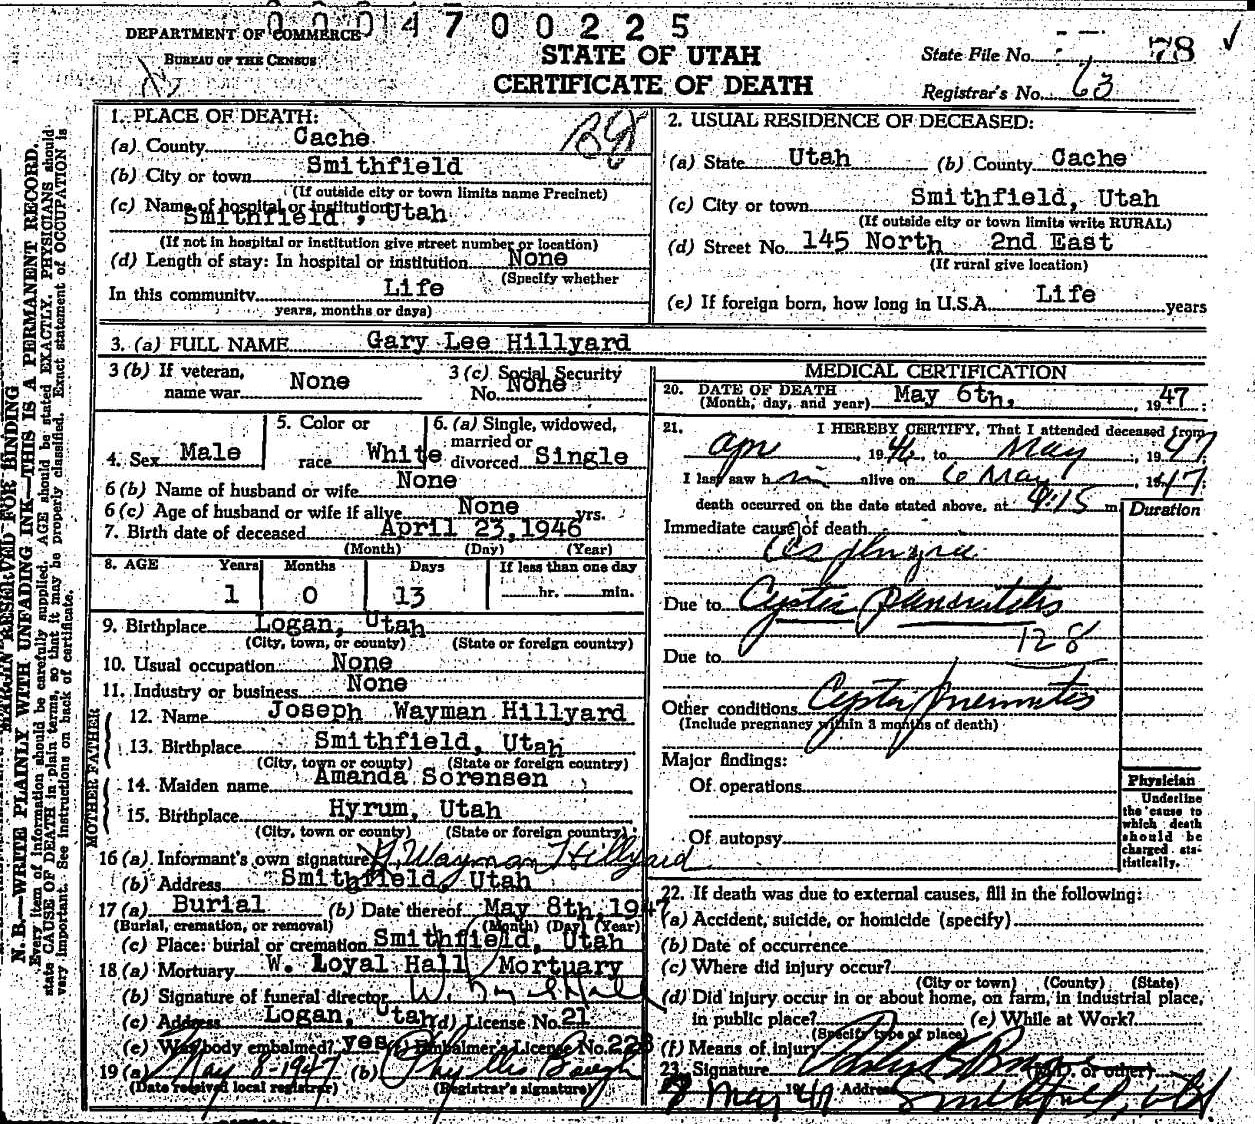 0004700225
DEPARTMENT OF COMMERCE
BUREAU OF THE CENSUS
STATE OF UTAH
CERTIFICATE OF DEATH
State File No. 78
Registrar's No. 63
MARGIN RESERVED FOR BINDING
N. B.—WRITE PLAINLY WITH UNFADING INK—THIS IS A PERMANENT RECORD.
Every item of information should be carefully supplied. AGE should be stated EXACTLY. PHYSICIANS should
state CAUSE OF DEATH in plain terms, so that it may be properly classified. Exact statement of OCCUPATION is
very important. See instructions on back of certificate.
1. PLACE OF DEATH:
(a) County Cache
(b) City or town Smithfield
(If outside city or town limits name Precinct)
(c) Name of hospital or institution
Smithfield, Utah
(If not in hospital or institution give street number or location)
(d) Length of stay: In hospital or institution None
(Specify whether
In this community Life
years, months or days)
2. USUAL RESIDENCE OF DECEASED:
(a) State Utah (b) County Cache
(c) City or town Smithfield, Utah
(If outside city or town limits write RURAL)
(d) Street No. 145 North 2nd East
(If rural give location)
(e) If foreign born, how long in U.S.A. Life years
3. (a) FULL NAME Gary Lee Hillyard
3 (b) If veteran, name war None
3 (c) Social Security No. None
4. Sex Male
5. Color or race White
6. (a) Single, widowed, married or divorced Single
6 (b) Name of husband or wife None
6 (c) Age of husband or wife if alive None yrs.
7. Birth date of deceased April 23, 1946
(Month) (Day) (Year)
8. AGE Years Months Days If less than one day
1 0 13 hr. min.
9. Birthplace Logan, Utah
(City, town, or county) (State or foreign country)
10. Usual occupation None
11. Industry or business None
FATHER
12. Name Joseph Wayman Hillyard
13. Birthplace Smithfield, Utah
(City, town or county) (State or foreign country)
MOTHER
14. Maiden name Amanda Sorensen
15. Birthplace Hyrum, Utah
(City, town or county) (State or foreign country)
16 (a). Informant's own signature J. Wayman Hillyard
(b) Address Smithfield, Utah
17 (a) Burial (b) Date thereof May 8th, 1947
(Burial, cremation, or removal) (Month) (Day) (Year)
(c) Place: burial or cremation Smithfield, Utah
18 (a) Mortuary W. Loyal Hall Mortuary
(b) Signature of funeral director W. Loyal Hall
(c) Address Logan, Utah (d) License No. 21
(e) Was body embalmed? yes (f) Embalmer's License No. 228
19 (a) May 8-1947 (b) Phyllis Gough
(Date received local registrar) (Registrar's signature)
MEDICAL CERTIFICATION
20. DATE OF DEATH May 6th, 1947
(Month, day, and year)
21. I HEREBY CERTIFY, That I attended deceased from
Apr, 1946, to May, 1947
I last saw him alive on 6 May, 1947
death occurred on the date stated above, at 4:15 m
Duration
Immediate cause of death
Due to Cystic pancreatitis
128
Due to
Other conditions Cystic pneumonitis
(Include pregnancy within 3 months of death)
Major findings:
Of operations
Of autopsy
Physician
Underline the cause to which death should be charged statistically.
22. If death was due to external causes, fill in the following:
(a) Accident, suicide, or homicide (specify)
(b) Date of occurrence
(c) Where did injury occur?
(City or town) (County) (State)
(d) Did injury occur in or about home, on farm, in industrial place,
in public place? (e) While at Work?
(Specify type of place)
(f) Means of injury
23. Signature (M.D. or other)
8 May 1947 Address Smithfield, Ut.